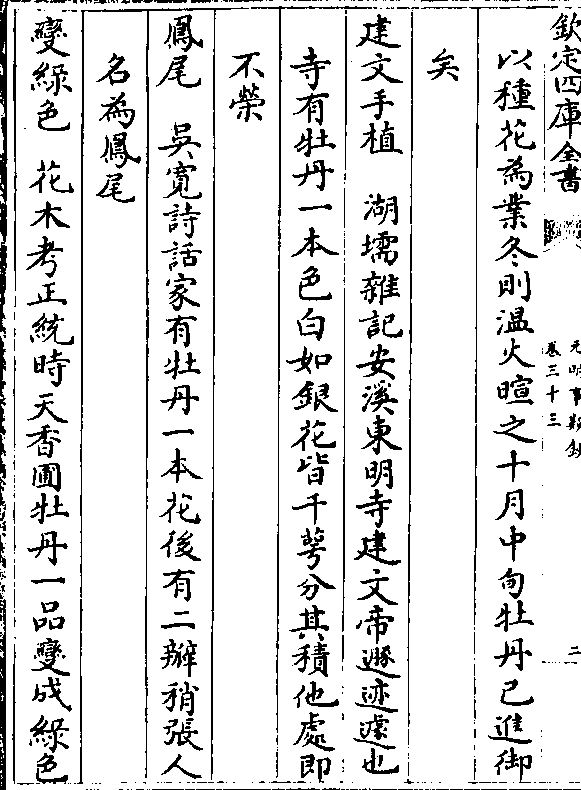 欽定四庫全書
元明事類鈔
卷三十三
二
以種花為業冬則溫火暄之十月中旬牡丹已進御
矣
建文手植　湖壖雜記安溪東明寺建文帝遯迹處也
寺有牡丹一本色白如銀花皆千萼分其積他處即
不榮
鳳尾　吳寛詩話家有牡丹一本花後有二瓣稍張人
名為鳳尾
變緑色　花木考正統時天香圃牡丹一品變成緑色